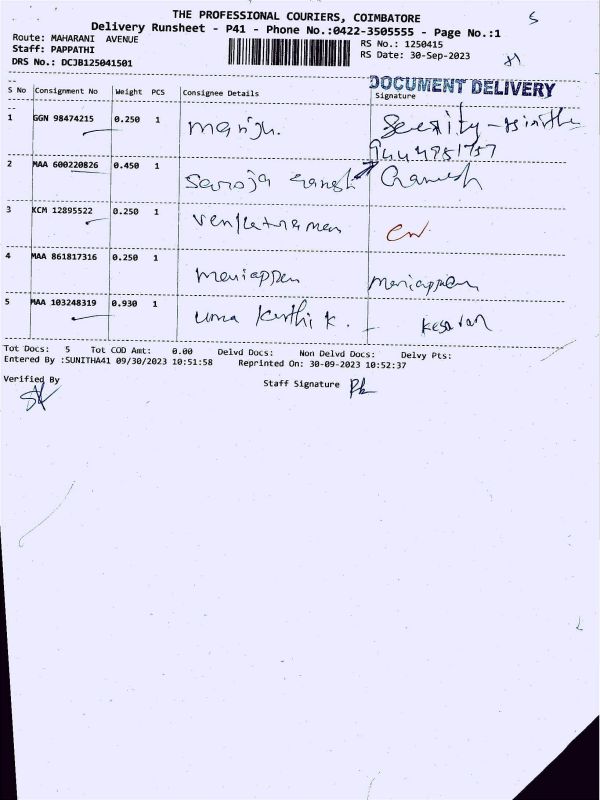 THE PROFESSIONAL COURIERS, COIMBATORE
5
Delivery Runsheet - P41 - Phone No.:0422-3505555 - Page No.:1
Route: MAHARANI AVENUE
RS No.: 1250415
Staff: PAPPATHI
RS Date: 30-Sep-2023
DRS No.: DCJB125041501
DOCUMENT DELIVERY
S No Consignment No Weight PCS Consignee Details Signature
1 GGN 98474215 0.250 1 Manju.
2 MAA 600220826 0.450 1 Saroja Ganesh
3 KCM 12895522 0.250 1 Venkatraman
4 MAA 861817316 0.250 1 Mariappan Mariappan
5 MAA 103248319 0.930 1 Uma Karthi K. Kesavan
Tot Docs: 5 Tot COD Amt: 0.00 Delvd Docs: Non Delvd Docs: Delvy Pts:
Entered By :SUNITHA41 09/30/2023 10:51:58 Reprinted On: 30-09-2023 10:52:37
Verified By
Staff Signature